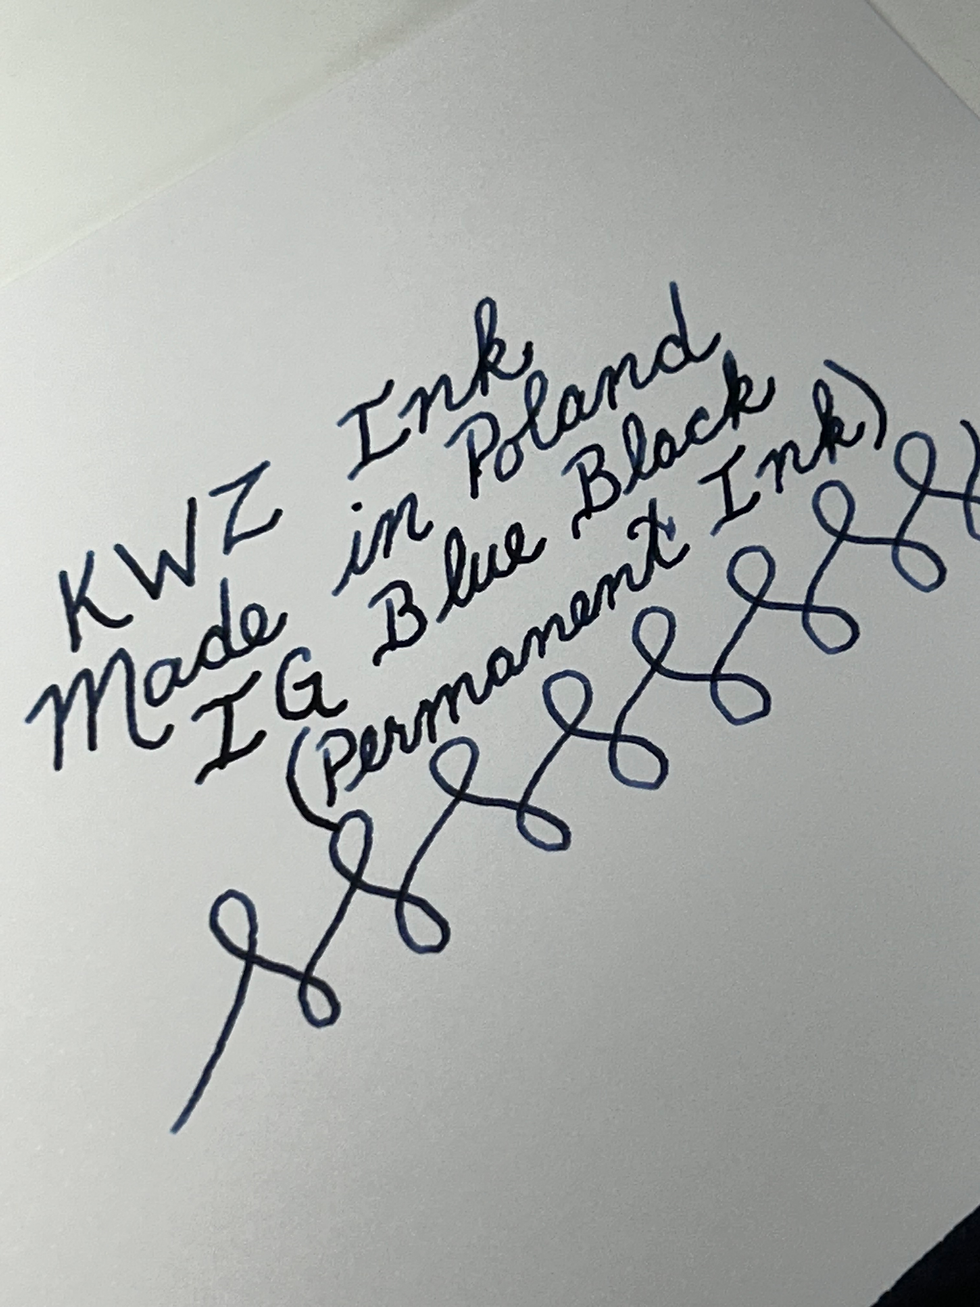 KWZ Ink
Made in Poland
IG Blue Black
(Permanent Ink)